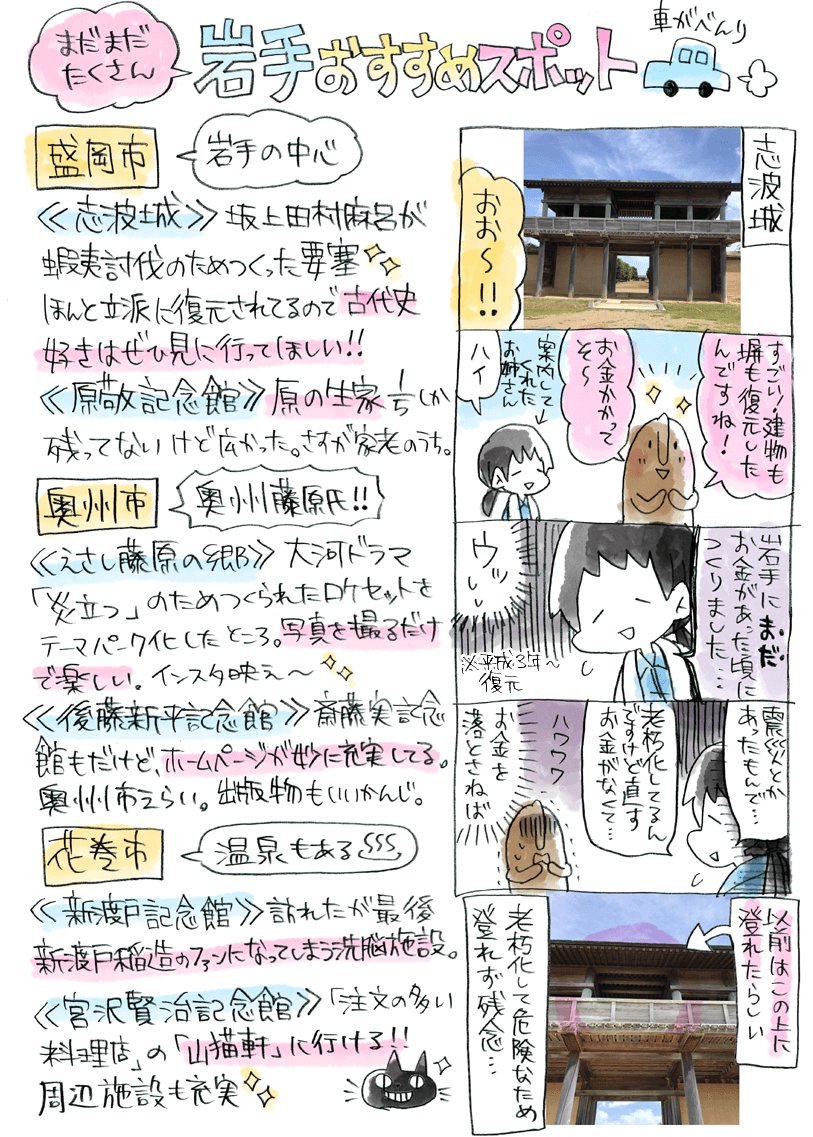 まだまだ
たくさん
岩手おすすめスポット
車がべんり
盛岡市
岩手の中心
≪志波城≫ 坂上田村麻呂が
蝦夷討伐のためつくった要塞
ほんと立派に復元されてるので古代史
好きはぜひ見に行ってほしい!!
≪原敬記念館≫ 原の生家1/5しか
残ってないけど広かった。さすが家老のうち。
奥州市
奥州藤原氏!!
≪えさし藤原の郷≫ 大河ドラマ
「炎立つ」のためつくられたロケセットを
テーマパーク化したところ。写真を撮るだけ
で楽しい。インスタ映え〜
≪後藤新平記念館≫ 斎藤実記念
館もだけど、ホームページが妙に充実してる。
奥州市えらい。出版物もいいかんじ。
花巻市
温泉もある
≪新渡戸記念館≫ 訪れたが最後
新渡戸稲造のファンになってしまう洗脳施設。
≪宮沢賢治記念館≫「注文の多い
料理店」の「山猫軒」に行ける!!
周辺施設も充実
志波城
おお〜!!
すごい!建物も
塀も復元した
んですね!
お金かかって
そ〜
案内して
くれた
お姉さん
ハイ
岩手にまだ
お金があった頃に
つくりました…
ウッ
※平成3年〜
復元
震災とか
あったもんで…
老朽化してるん
ですけど直す
お金がなくて…
ハワワワ
お金を
落とさねば
以前はこの上に
登れたらしい
老朽化して危険なため
登れず残念…